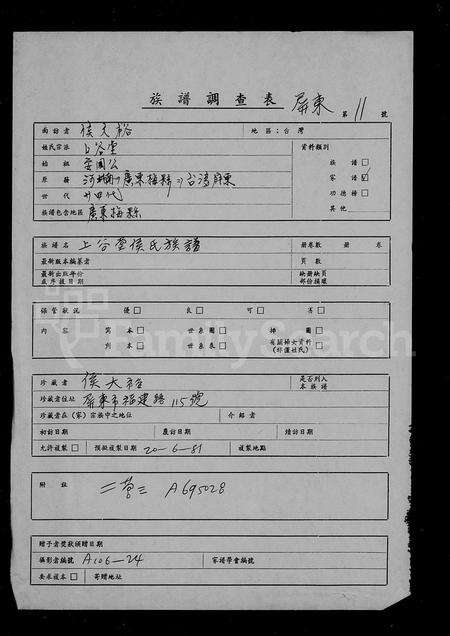 族譜調查表 屏東 第 11 號
面訪者 侯天裕 地區：台灣
姓氏宗派 上谷堂 資料類別
始祖 安國公 族譜 □
原籍 河南→廣東梅縣→台灣屏東 家譜 ☑
世代 廿四代 功德榜 □
族譜包含地區 廣東梅縣 其他
族譜名 上谷堂侯氏族譜 冊卷數 冊 卷
最新版本編纂者 頁數
最新出版年份 缺冊缺頁
或序跋日期 部份損壞
保管狀況 優 □ 良 □ 可 □ 劣 □
內容 寫本 □ 世系圖 □ 神圖 □
刊本 □ 世系表 □ 有關婦女資料 □
(非僅姓氏)
FamilySearch
珍藏者 侯天裕 是否列入
本族譜
珍藏者住址 屏東市福建路115號
珍藏者在(家)宗族中之地位 介紹者
初訪日期 履訪日期 續訪日期
允許複製 □ 預擬複製日期 20-6-81 複製地點
附註 A695028
贈予者獎狀頒贈日期
攝影者編號 A106-24 家譜學會編號
要求複本 □ 寄贈地址